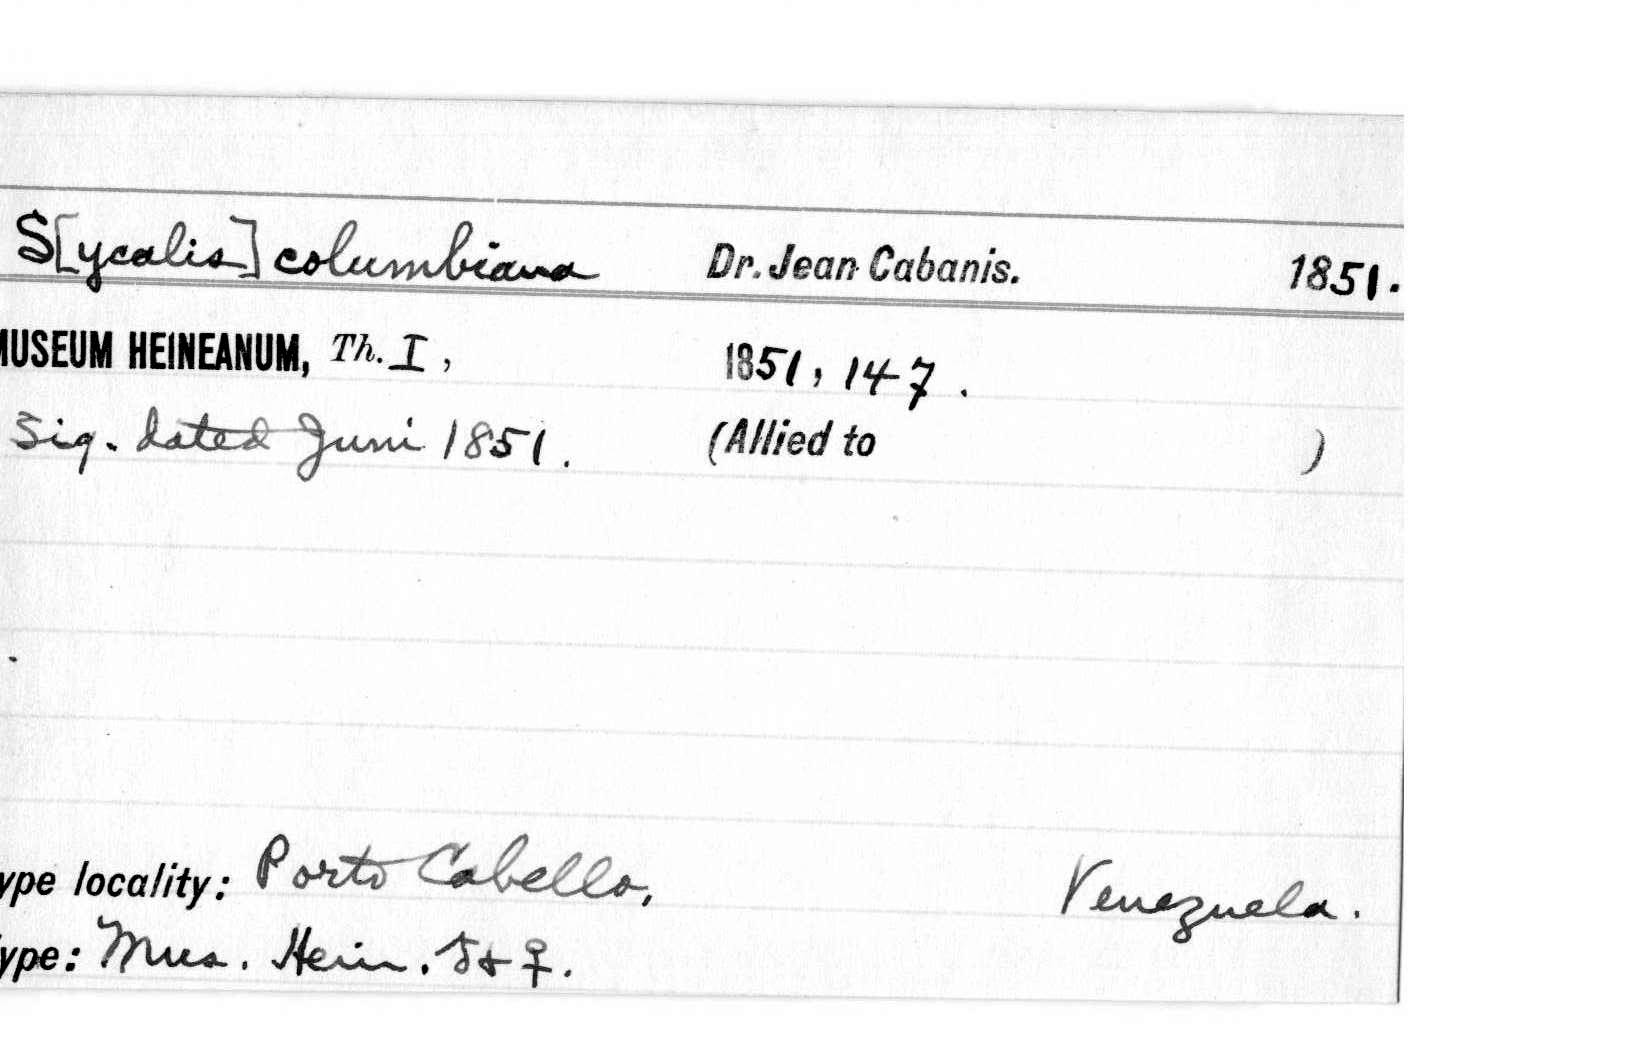 S[ycalis] columbiana Dr. Jean Cabanis. 1851.
MUSEUM HEINEANUM, Th. I, 1851, 147.
Sig. dated Juni 1851. (Allied to )
ype locality: Porto Cabello, Venezuela.
ype: Mus. Hein. ♀.